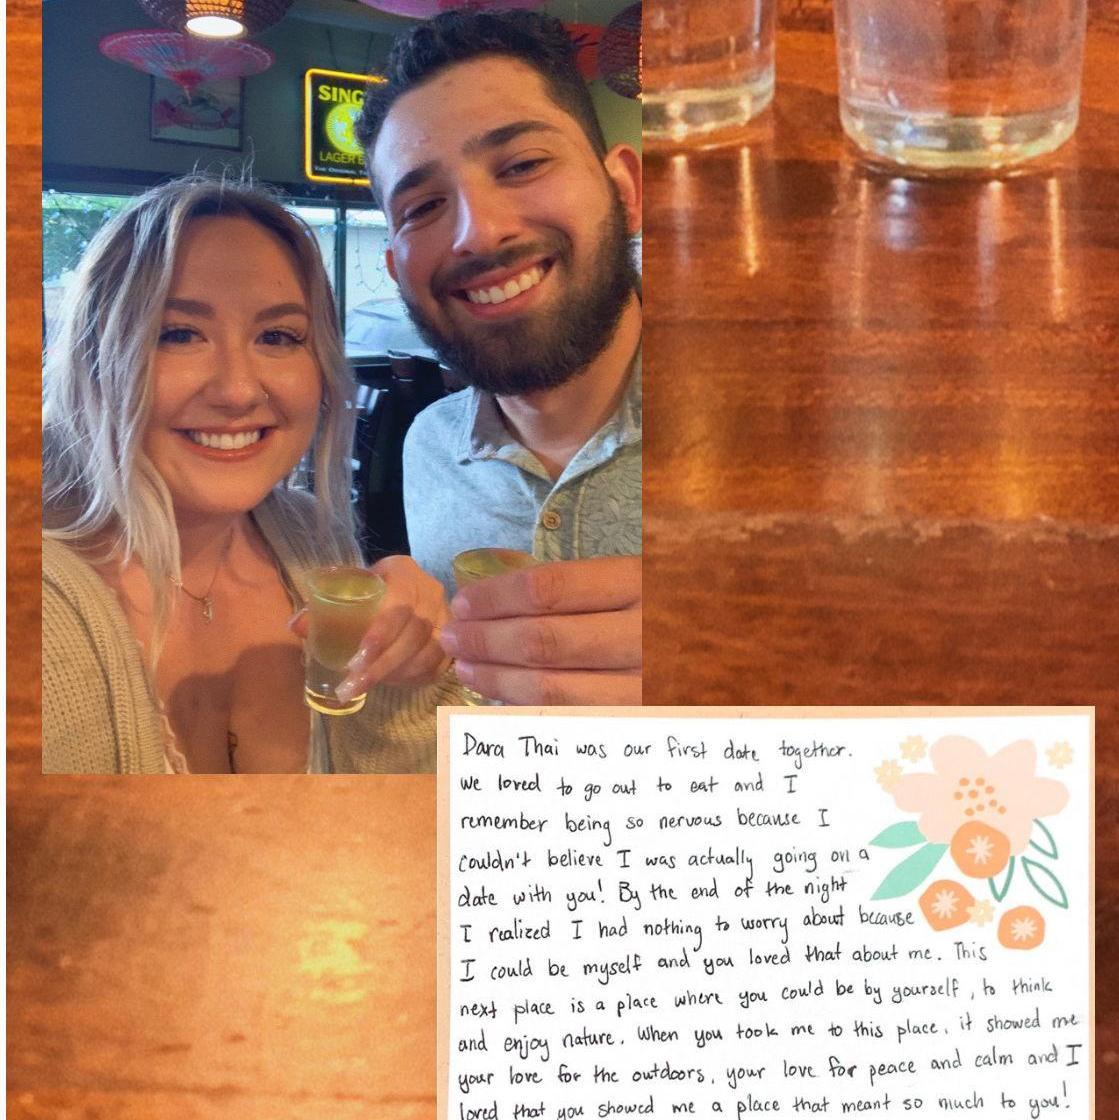 SING
LAGER B
Dara Thai was our first date together.
we loved to go out to eat and I
remember being so nervous because I
couldn't believe I was actually going on a
date with you! By the end of the night
I realized I had nothing to worry about because
I could be myself and you loved that about me. This
next place is a place where you could be by yourself, to think
and enjoy nature. When you took me to this place, it showed me
your love for the outdoors, your love for peace and calm and I
loved that you showed me a place that meant so much to you!